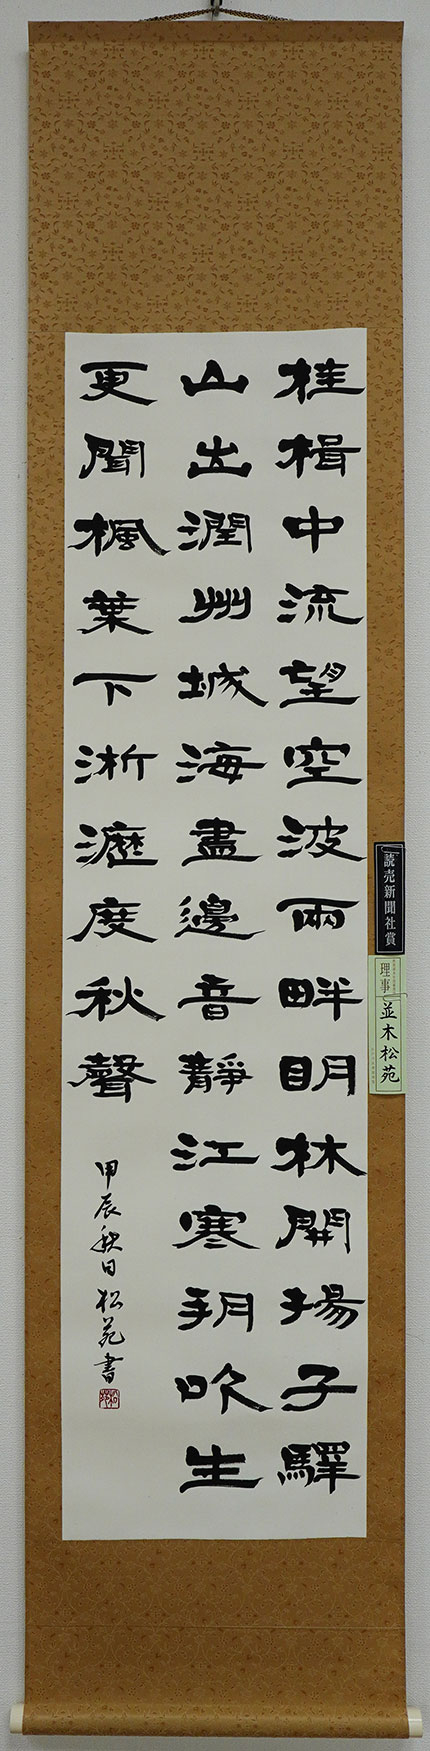 桂楫中流望空波兩畔明林開揚子驛
山出潤州城海盡邊音靜江寒朔吹生
更聞楓葉下淅瀝度秋聲
甲辰秋日松苑書
読売新聞社賞
理事
並木松苑